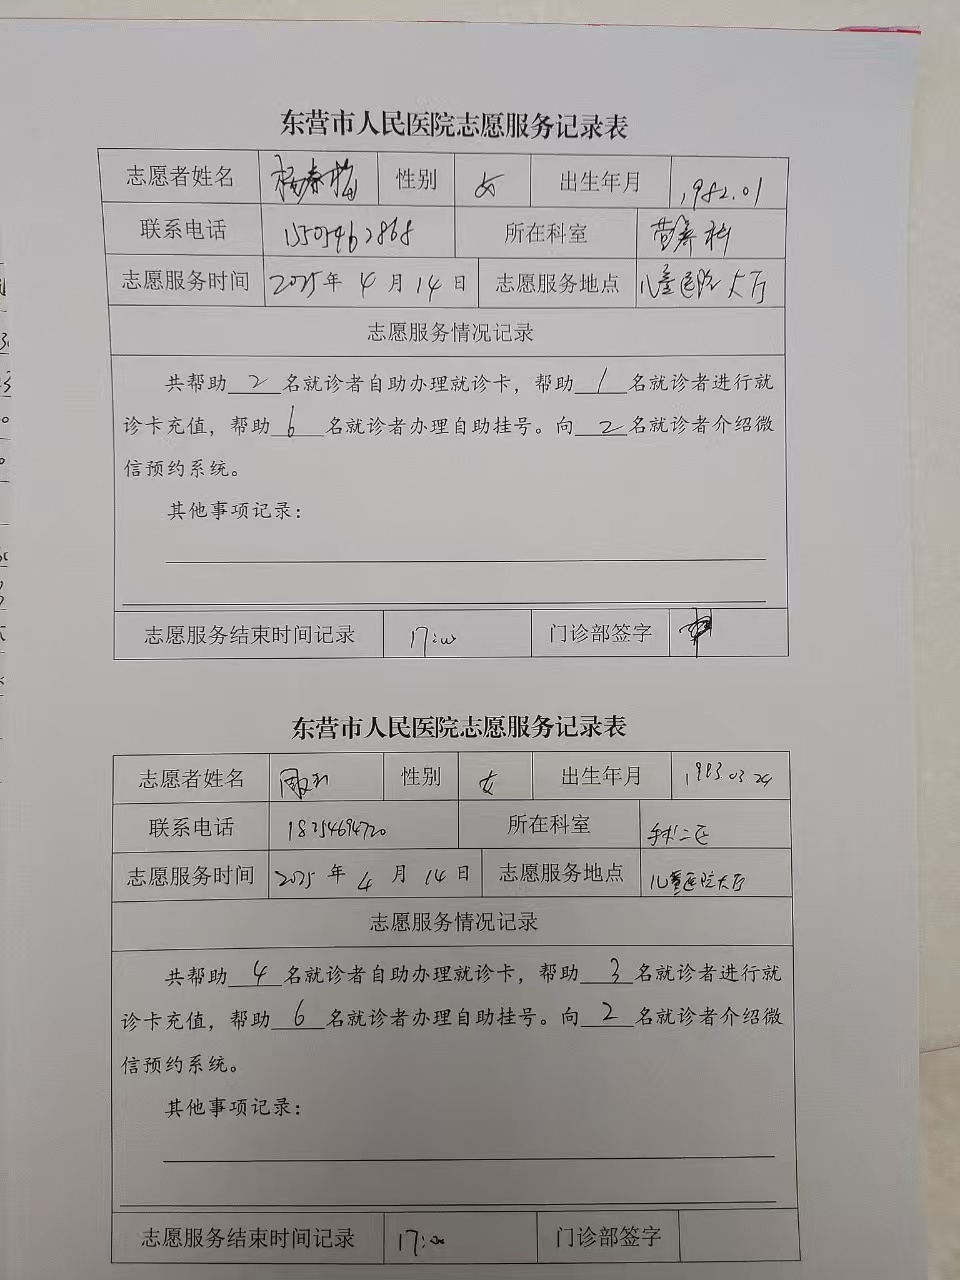 东营市人民医院志愿服务记录表
志愿者姓名 杨春梅 性别 女 出生年月 1982.01
联系电话 15054662868 所在科室 营养科
志愿服务时间 2025年 4 月 14 日 志愿服务地点 儿童医院大厅
志愿服务情况记录
共帮助 2 名就诊者自助办理就诊卡，帮助 1 名就诊者进行就
诊卡充值，帮助 6 名就诊者办理自助挂号。向 2 名就诊者介绍微
信预约系统。
其他事项记录：
志愿服务结束时间记录 17:00 门诊部签字
东营市人民医院志愿服务记录表
志愿者姓名 性别 女 出生年月 1983.03.24
联系电话 18254694720 所在科室 手术二区
志愿服务时间 2025 年 4 月 14 日 志愿服务地点 儿童医院大厅
志愿服务情况记录
共帮助 4 名就诊者自助办理就诊卡，帮助 3 名就诊者进行就
诊卡充值，帮助 6 名就诊者办理自助挂号。向 2 名就诊者介绍微
信预约系统。
其他事项记录：
志愿服务结束时间记录 17:00 门诊部签字